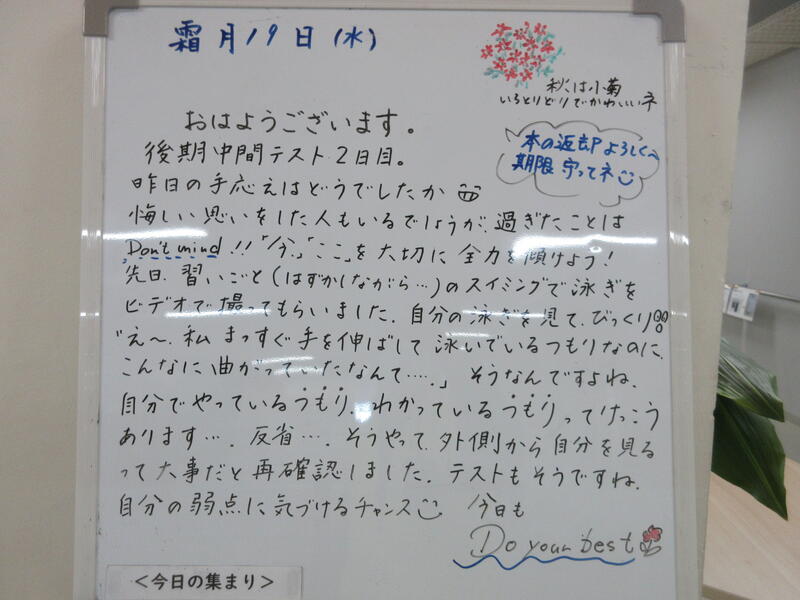 霜月19日(水)
秋は小菊
いろとりどりでかわいいネ
本の返却よろしく
期限守ってネ
おはようございます。
後期中間テスト2日目。
昨日の手応えはどうでしたか
悔しい思いをした人もいるでしょうが、過ぎたことは
Don't mind!!「今」「ここ」を大切に全力を傾けよう!
先日、習いごと(はずかしながら…)のスイミングで泳ぎを
ビデオで撮ってもらいました。自分の泳ぎを見て、びっくり!!
"え〜、私まっすぐ手を伸ばして泳いでいるつもりなのに、
こんなに曲がっていたなんて….」そうなんですよね。
自分でやっているつもり、わかっているつもりってけっこう
あります…. 反省…. そうやって、外側から自分を見る
って大事だと再確認しました。テストもそうですね。
自分の弱点に気づけるチャンス 今日も
Do your best
<今日の集まり>